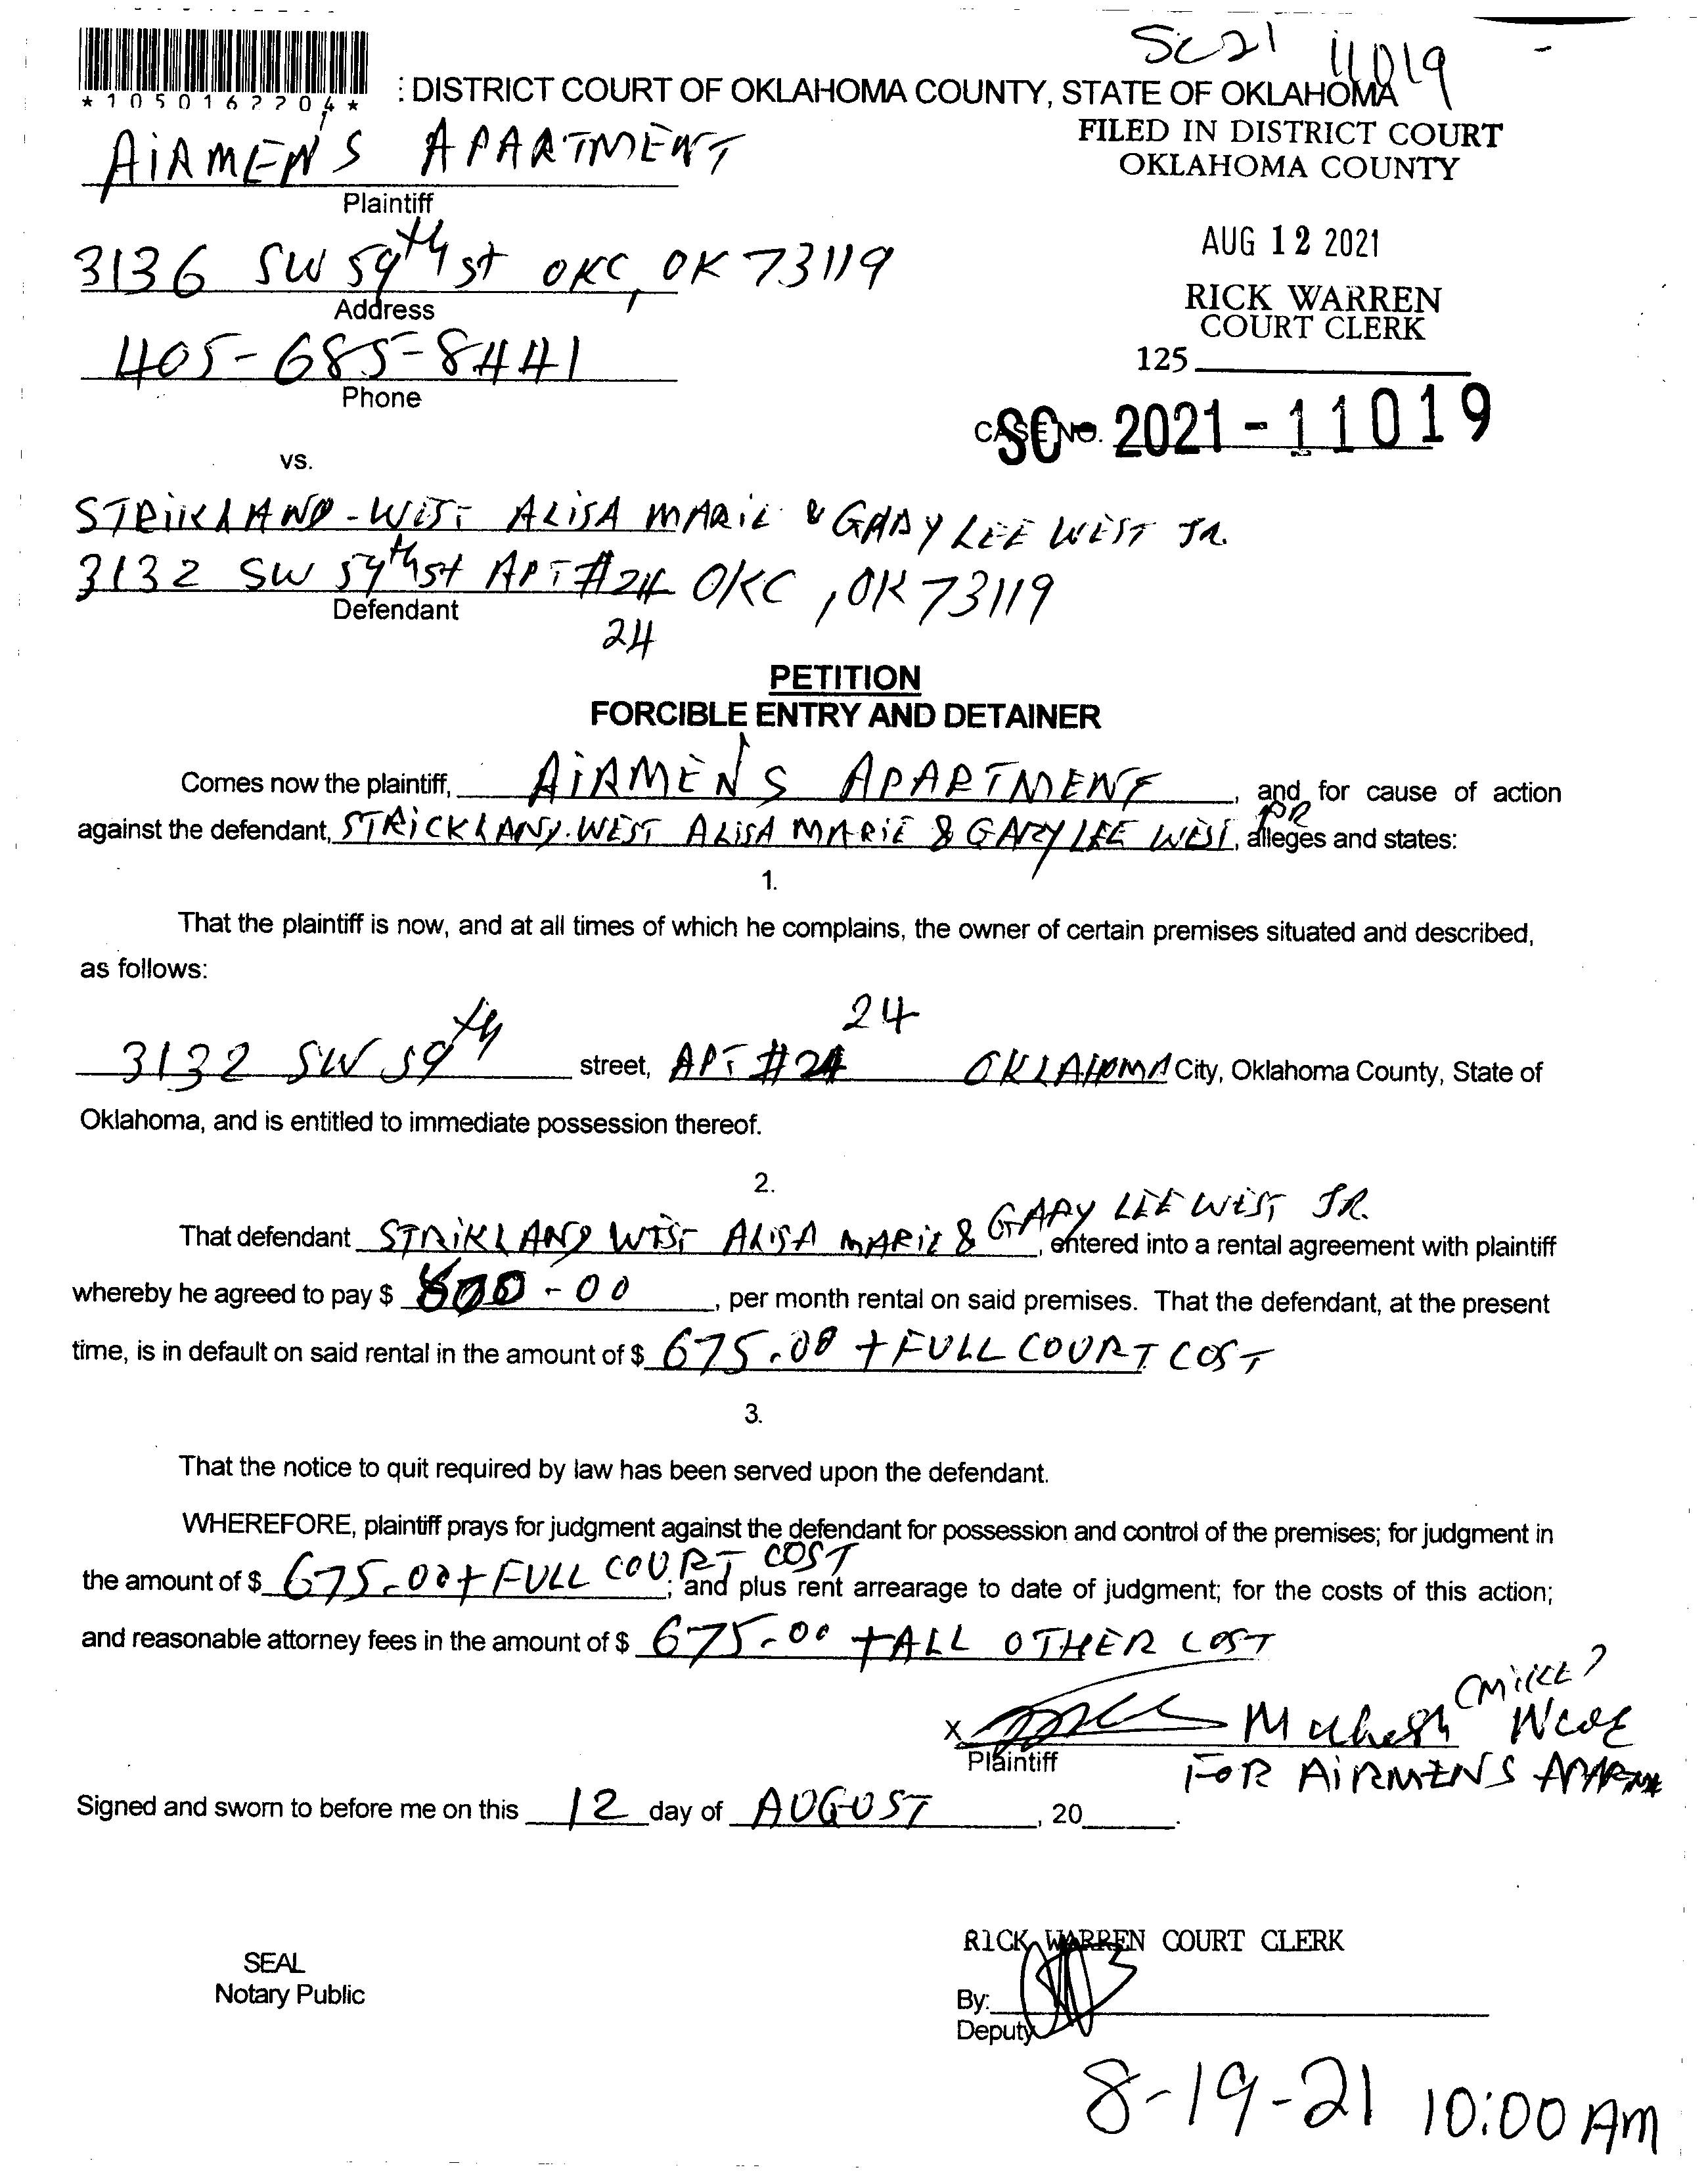 SC21 11019 -
*1050162204*
: DISTRICT COURT OF OKLAHOMA COUNTY, STATE OF OKLAHOMA
FILED IN DISTRICT COURT
OKLAHOMA COUNTY
AIRMEN'S APARTMENT
Plaintiff
AUG 12 2021
3136 SW 59th st OKC, OK 73119
Address
RICK WARREN
COURT CLERK
405-685-8441
125
Phone
CASE NO. SC - 2021 - 11019
vs.
STRIKLAND-WEST ALISA MARIE & GARY LEE WEST JR.
3132 SW 59th st APT #24 OKC, OK 73119
Defendant
24
PETITION
FORCIBLE ENTRY AND DETAINER
Comes now the plaintiff, AIRMEN'S APARTMENT, and for cause of action
against the defendant, STRICKLAND-WEST ALISA MARIE & GARY LEE WEST, JR alleges and states:
1.
That the plaintiff is now, and at all times of which he complains, the owner of certain premises situated and described,
as follows:
24
3132 SW 59th street, APT #24 OKLAHOMA City, Oklahoma County, State of
Oklahoma, and is entitled to immediate possession thereof.
2.
That defendant STRIKLAND WEST ALISA MARIE & GARY LEE WEST JR., entered into a rental agreement with plaintiff
whereby he agreed to pay $ -00, per month rental on said premises. That the defendant, at the present
time, is in default on said rental in the amount of $ 675.00 + FULL COURT COST
3.
That the notice to quit required by law has been served upon the defendant.
WHEREFORE, plaintiff prays for judgment against the defendant for possession and control of the premises; for judgment in
the amount of $ 675.00 + FULL COURT COST; and plus rent arrearage to date of judgment; for the costs of this action;
and reasonable attorney fees in the amount of $ 675.00 + ALL OTHER COST
X Mukesh (MIKE)
Plaintiff FOR AIRMEN'S
Signed and sworn to before me on this 12 day of AUGUST, 20 .
RICK WARREN COURT CLERK
SEAL
Notary Public
By:
Deputy
8-19-21 10:00 AM